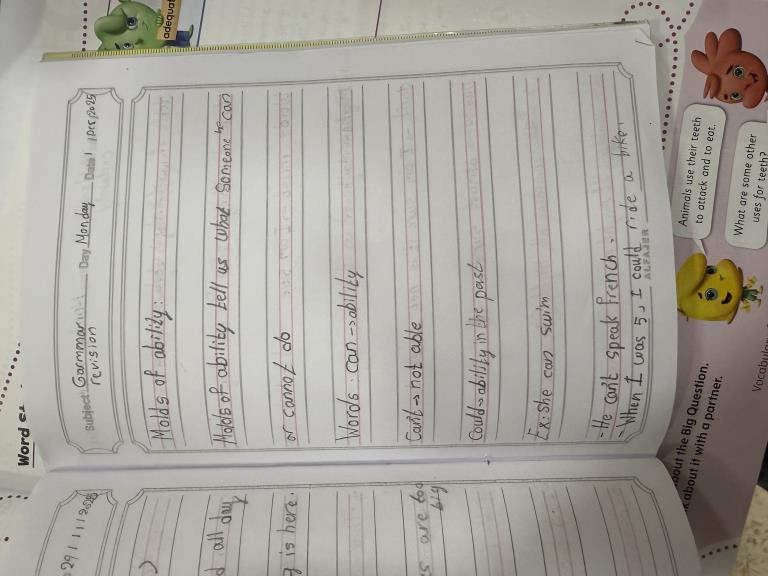 adequat
Word St
Subject: Gammar revision Day Monday Date: 1 Dec 2025
Molds of ability:
Molds of ability tell us what someone can
or cannot do
Words: can → ability
Can't → not able
Could → ability in the past
Ex: She can swim
- He can't speak french.
- When I was 5, I could ride a bike.
ALFAJER
Animals use their teeth
to attack and to eat.
What are some other
uses for teeth?
out the Big Question.
about it with a partner.
Vocabular
29/11/2025
d all day
is here.
s are too